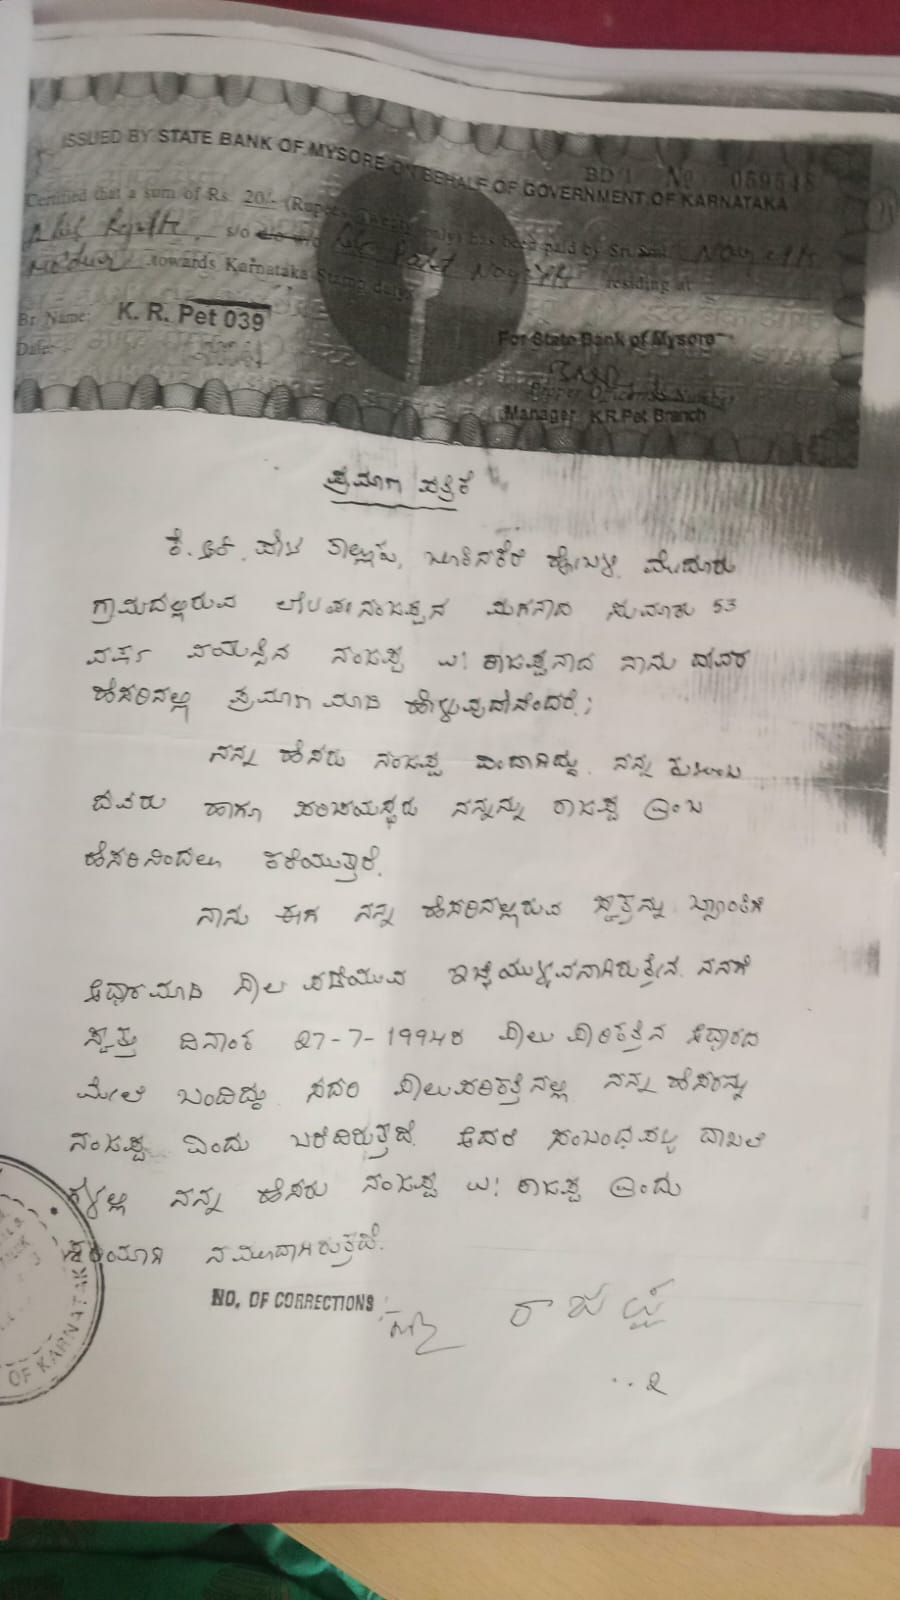 ISSUED BY STATE BANK OF MYSORE ON BEHALF OF GOVERNMENT OF KARNATAKA
BD/1 No 059548
Certified that a sum of Rs. 20/- (Rupees Twenty only) has been paid by Sri/Smt.
s/o d/o w/o Late
towards Karnataka Stamp duty residing at
Br. Name: K. R. Pet 039
Date:
For State Bank of Mysore
Manager K.R.Pet Branch
ಪ್ರಮಾಣ ಪತ್ರಿಕೆ
ಕೆ.ಆರ್.ಪೇಟೆ ತಾಲ್ಲೂಕು, ಬೂಕನಕೆರೆ ಹೋಬಳಿ,
ಗ್ರಾಮದಲ್ಲಿರುವ ಲೇಟ್ ನಂಜಪ್ಪನ ಮಗನಾದ ಸುಮಾರು 53
ವರ್ಷ ವಯಸ್ಸಿನ ನಂಜಪ್ಪ ಉ! ರಾಜಪ್ಪನಾದ ನಾನು ದೇವರ
ಹೆಸರಿನಲ್ಲಿ ಪ್ರಮಾಣ ಮಾಡಿ ಹೇಳುವುದೇನೆಂದರೆ;
ನನ್ನ ಹೆಸರು ನಂಜಪ್ಪ ಎಂದಾಗಿದ್ದು, ನನ್ನ ಕುಟುಂಬ
ದವರು ಹಾಗೂ ಪರಿಚಯಸ್ಥರು ನನ್ನನ್ನು ರಾಜಪ್ಪ ಎಂಬ
ಹೆಸರಿನಿಂದಲೂ ಕರೆಯುತ್ತಾರೆ.
ನಾನು ಈಗ ನನ್ನ ಹೆಸರಿನಲ್ಲಿರುವ ಸ್ವತ್ತನ್ನು ಬ್ಯಾಂಕಿಗೆ
ಆಧಾರಮಾಡಿ ಸಾಲ ಪಡೆಯುವ ಇಚ್ಛೆಯುಳ್ಳವನಾಗಿರುತ್ತೇನೆ. ನನಗೆ
ಸ್ವತ್ತು ದಿನಾಂಕ 27-7-1994ರ ಪಾಲು ಪಾರಿಕತ್ತಿನ ಆಧಾರದ
ಮೇಲೆ ಬಂದಿದ್ದು ಸದರಿ ಪಾಲುಪಾರಿಕತ್ತಿನಲ್ಲಿ ನನ್ನ ಹೆಸರನ್ನು
ನಂಜಪ್ಪ ಎಂದು ಬರೆದಿರುತ್ತದೆ. ಆದರೆ ಸಂಬಂಧಪಟ್ಟ ದಾಖಲೆ
ಗಳಲ್ಲಿ ನನ್ನ ಹೆಸರು ನಂಜಪ್ಪ ಉ! ರಾಜಪ್ಪ ಎಂದು
ನಮೂದಾಗಿರುತ್ತದೆ.
NO. OF CORRECTIONS
ರಾಜಪ್ಪ
..2
OF KARNATAK